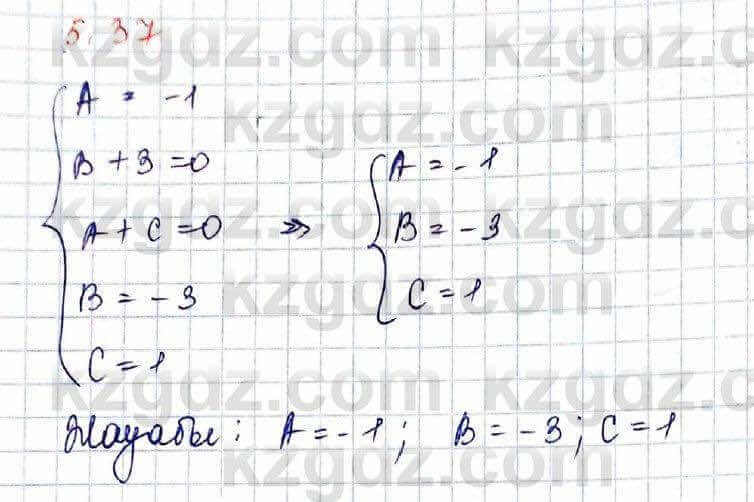 5.37
A = -1
B + 3 = 0
A + C = 0 => 
B = -3
C = 1
A = -1
B = -3
C = 1
Жауабы: A = -1; B = -3; C = 1
kzgdz.com
kzgdz.com
kzgdz.com
kzgdz.com
kzgdz.com
kzgdz.com
kzgdz.com